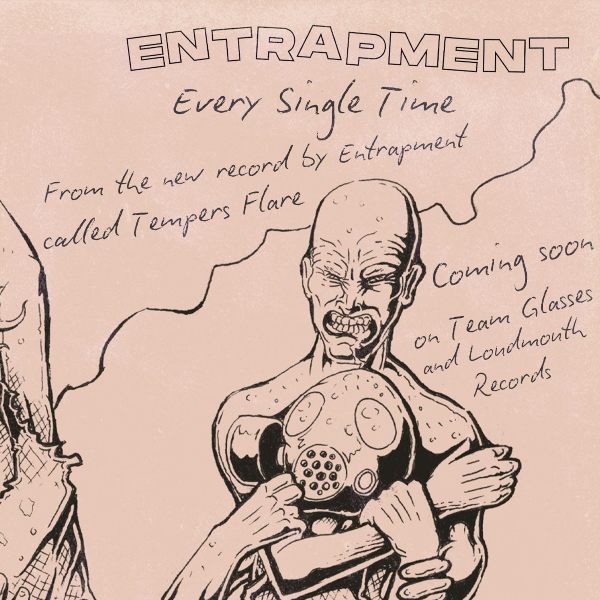 ENTRAPMENT
Every Single Time
From the new record by Entrapment
called Tempers Flare
Coming soon
on Team Glasses
and Loudmouth
Records